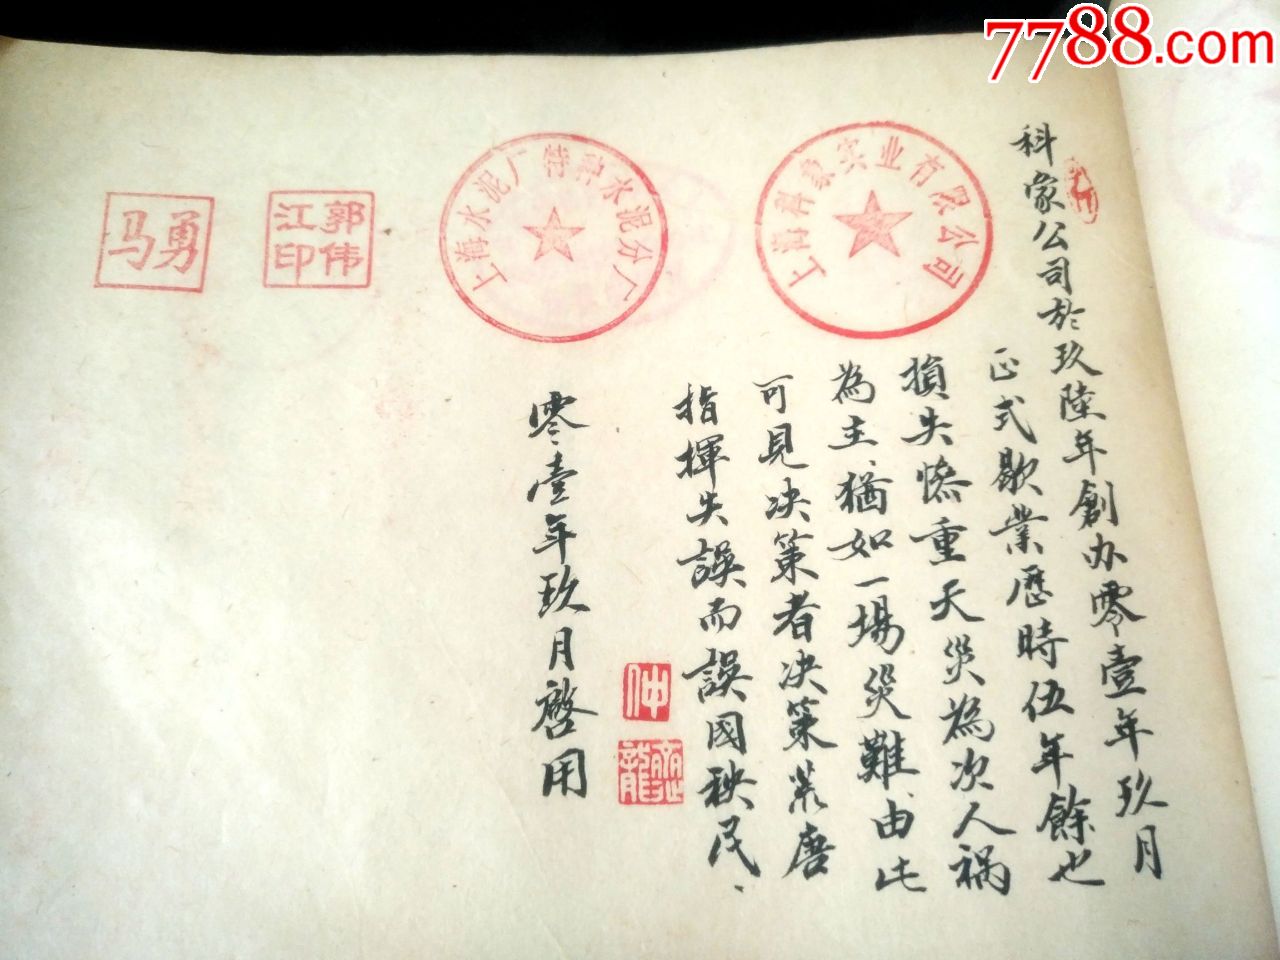 7788.com
科象公司於玖陸年創办零壹年玖月
正式歇業歷時伍年餘也
損失慘重天災為次人祸
為主、猶如一場災難、由此
可見决策者决策荒唐
指揮失誤而誤國秧民、
上海科象实业有限公司
上海水泥厂特种水泥分厂
郭伟江印
马勇
零壹年玖月啓用
仲
龍齋